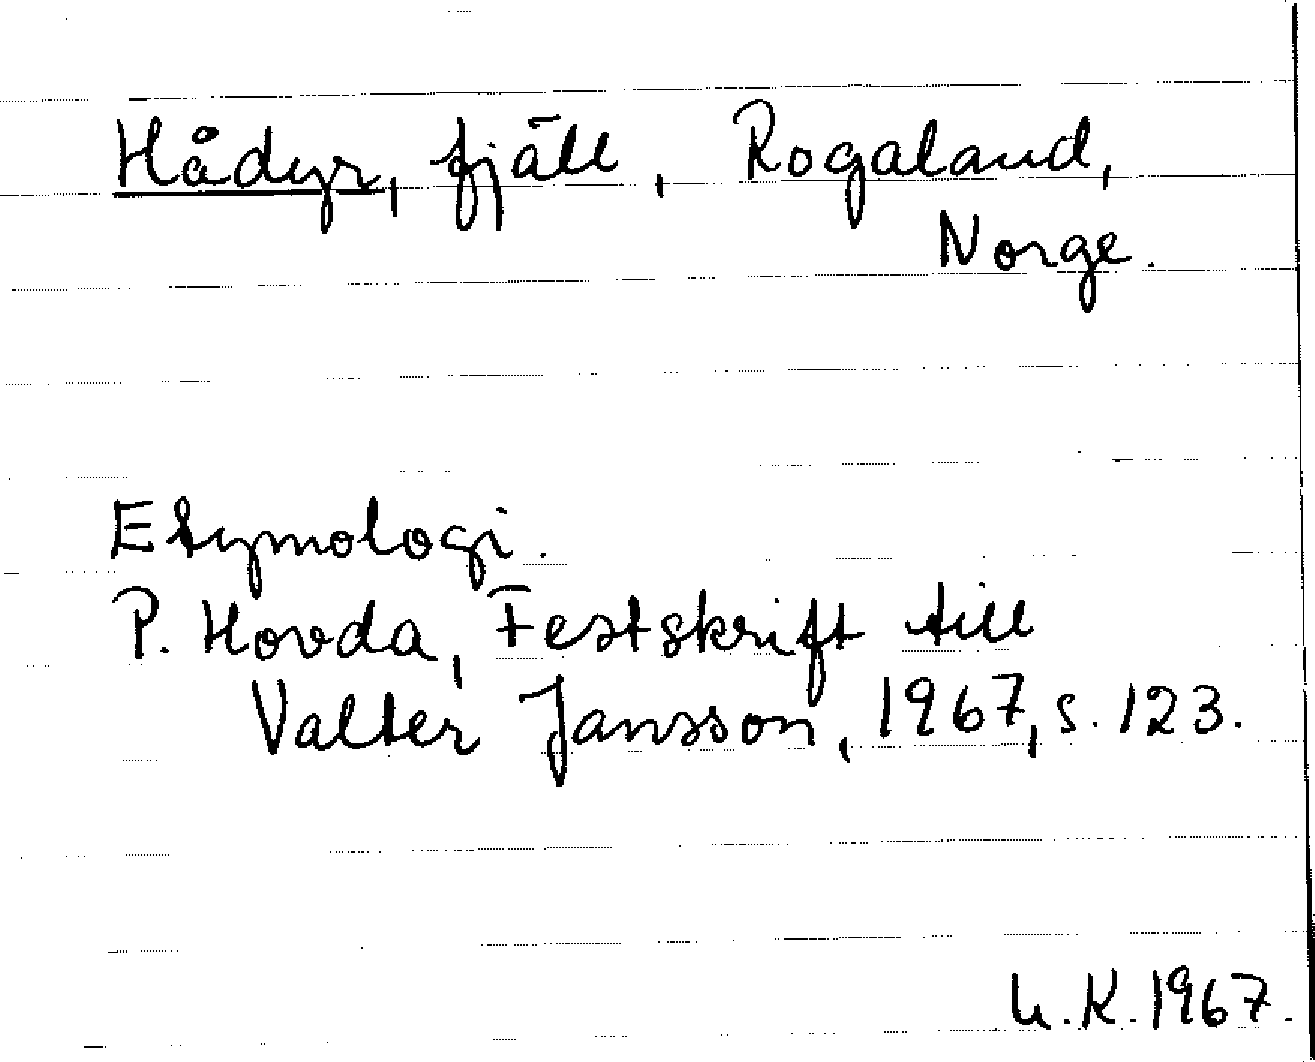 Hådyr, fjäll, Rogaland,
Norge.
Etymologi.
P. Hovda, Festskrift till
Valter Jansson, 1967, s. 123.
U.K. 1967.